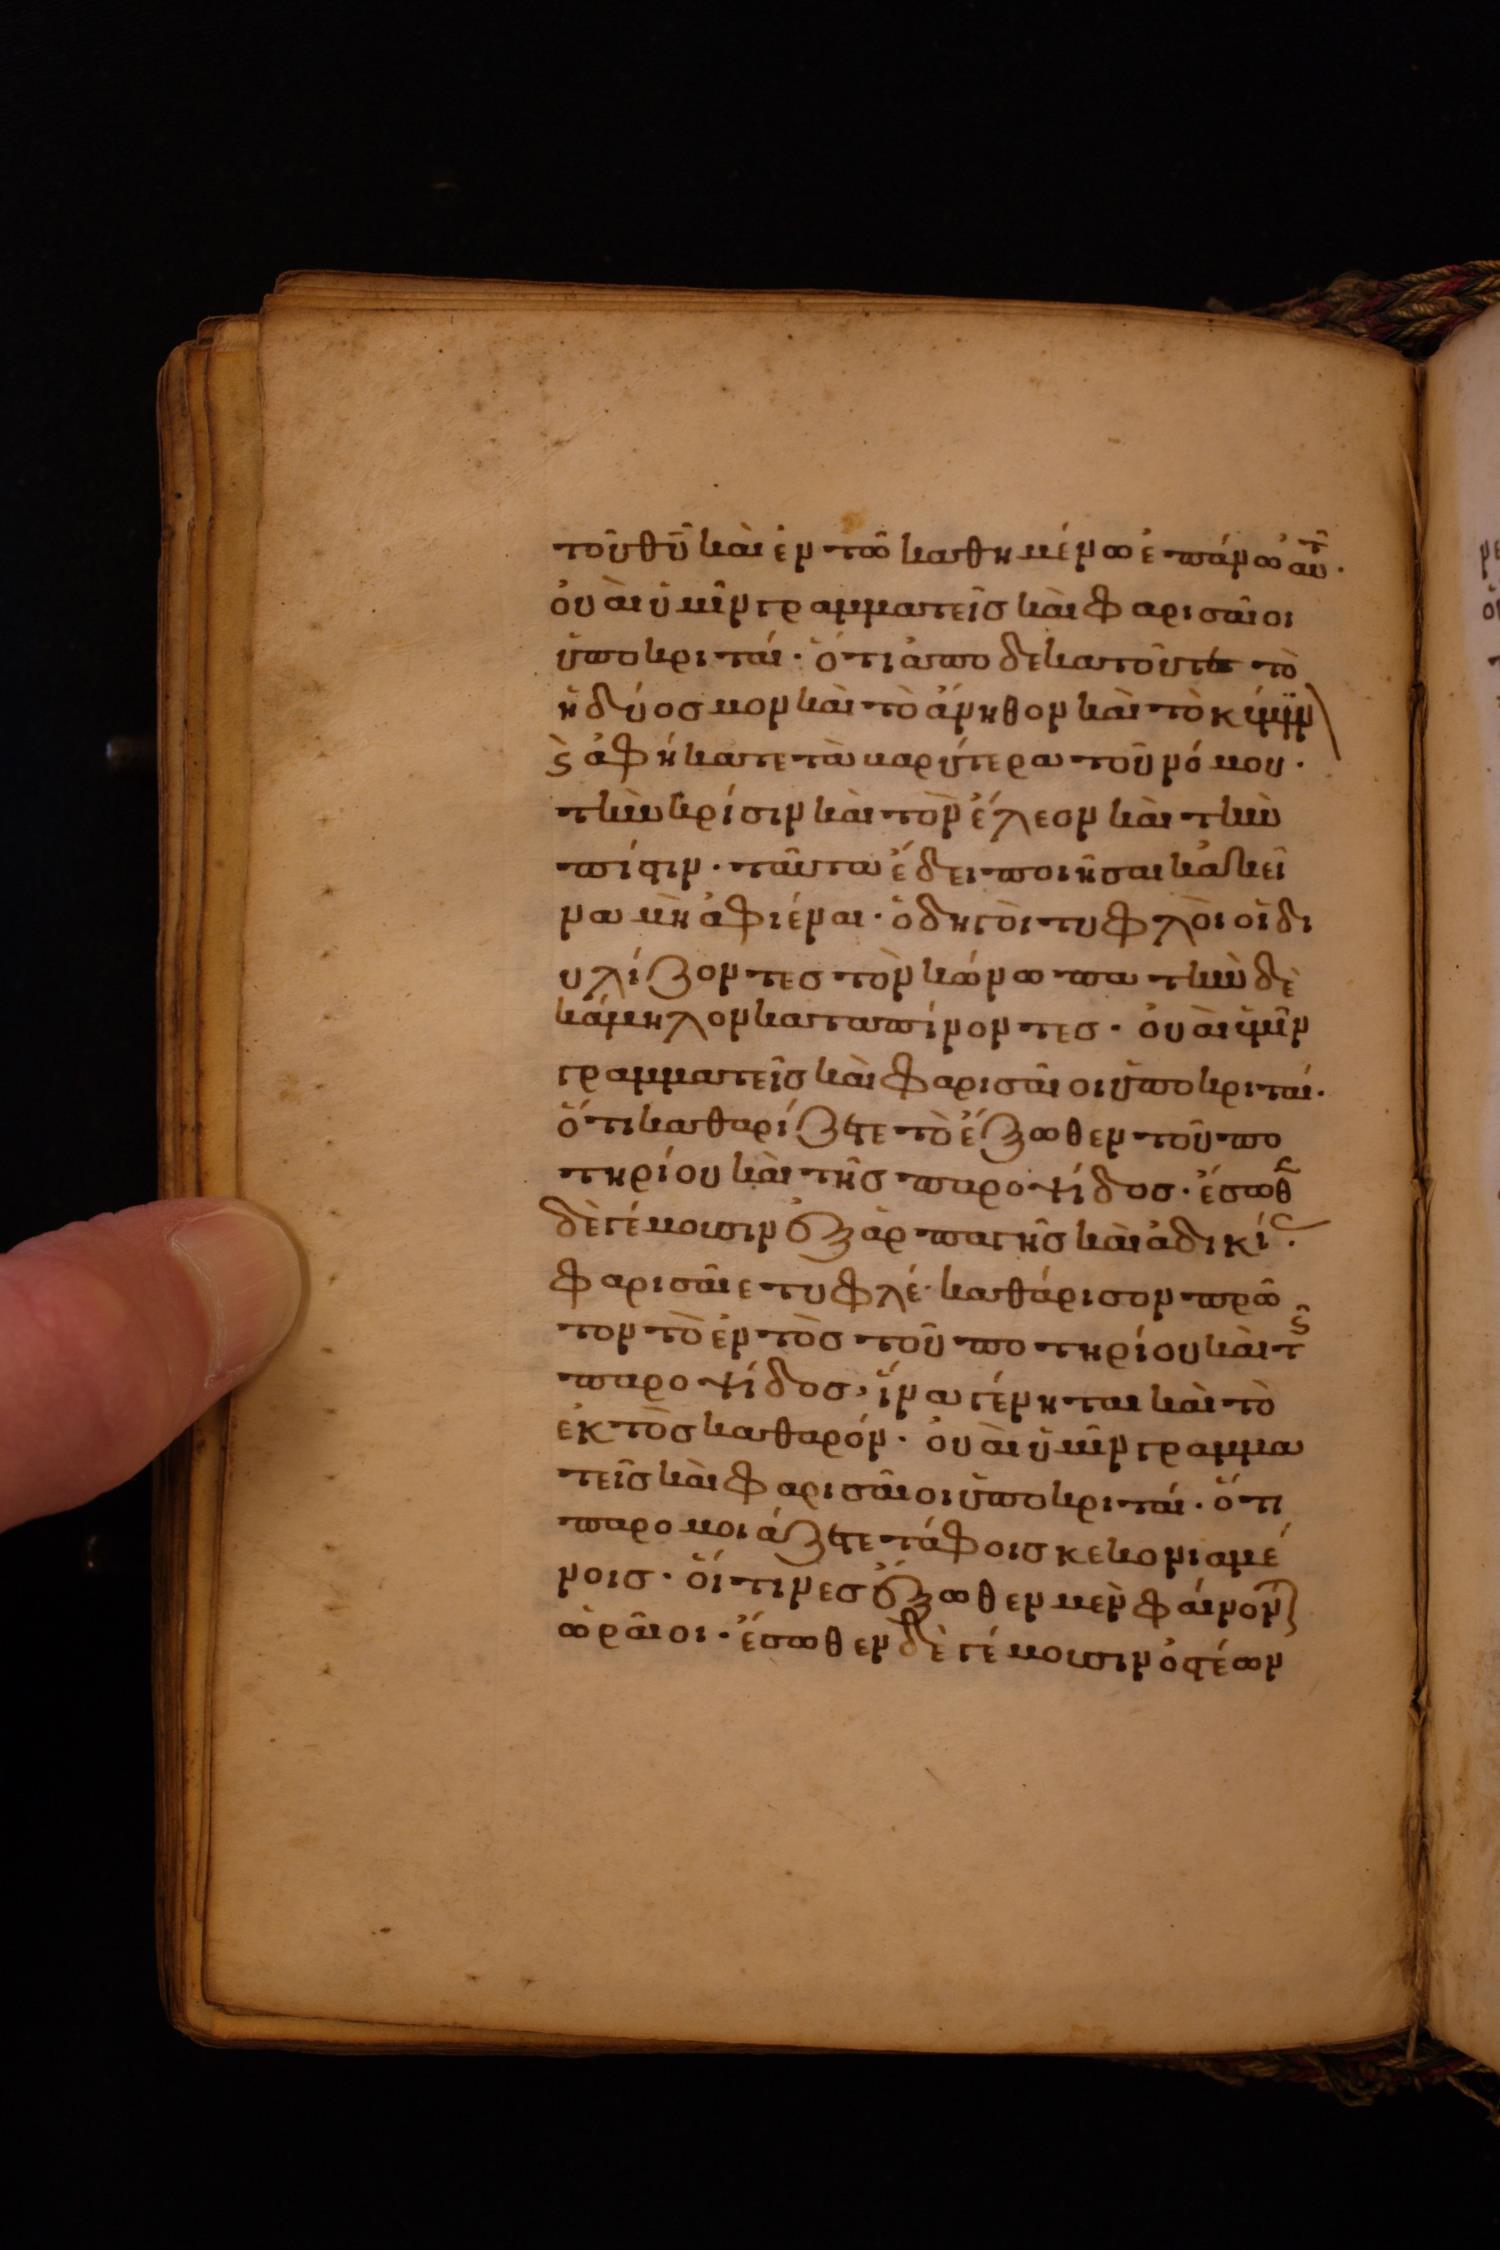 τοῦ θῦ καὶ ἐν τῶ καθημένω ἐπάνω αὐτ̑.
οὐαὶ ὑμῖν γραμματεῖς καὶ φαρισαῖοι
ὑποκριταί· ὅτι ἀποδεκατοῦτε τὸ
ἡδύοσμον καὶ τὸ ἄνηθον καὶ τὸ κύμϊν
ϛ̀ ἀφήκατε τὰ βαρύτερα τοῦ νόμου·
τὴν κρίσιν καὶ τὸν ἔλεον καὶ τὴν
πίστιν· ταῦτα ἔδει ποιῆσαι κἀκεῖ
να μὴ ἀφιέναι· ὁδηγοὶ τυφλοὶ οἱ δι
υλίζοντες τὸν κώνωπα τὴν δὲ
κάμηλον καταπίνοντες· οὐαὶ ὑμῖν
γραμματεῖς καὶ φαρισαῖοι ὑποκριταί·
ὅτι καθαρίζετε τὸ ἔξωθεν τοῦ πο
τηρίου καὶ τῆς παροψίδος· ἔσωθ
δὲ γέμουσιν ἐξ ἁρπαγῆς καὶ ἀδικί·
φαρισαῖε τυφλέ· καθάρισον πρῶ
τον τὸ ἐντὸς τοῦ ποτηρίου καὶ τ
παροψίδος, ἵνα γένηται καὶ τὸ
ἐκτὸς καθαρόν· οὐαὶ ὑμῖν γραμμα
τεῖς καὶ φαρισαῖοι ὑποκριταί· ὅτι
παρομοιάζετε τάφοις κεκονιαμέ
νοις· οἵτινες ἔξωθεν μὲν φαίνον
ὡραῖοι· ἔσωθεν δὲ γέμουσιν ὀστέων